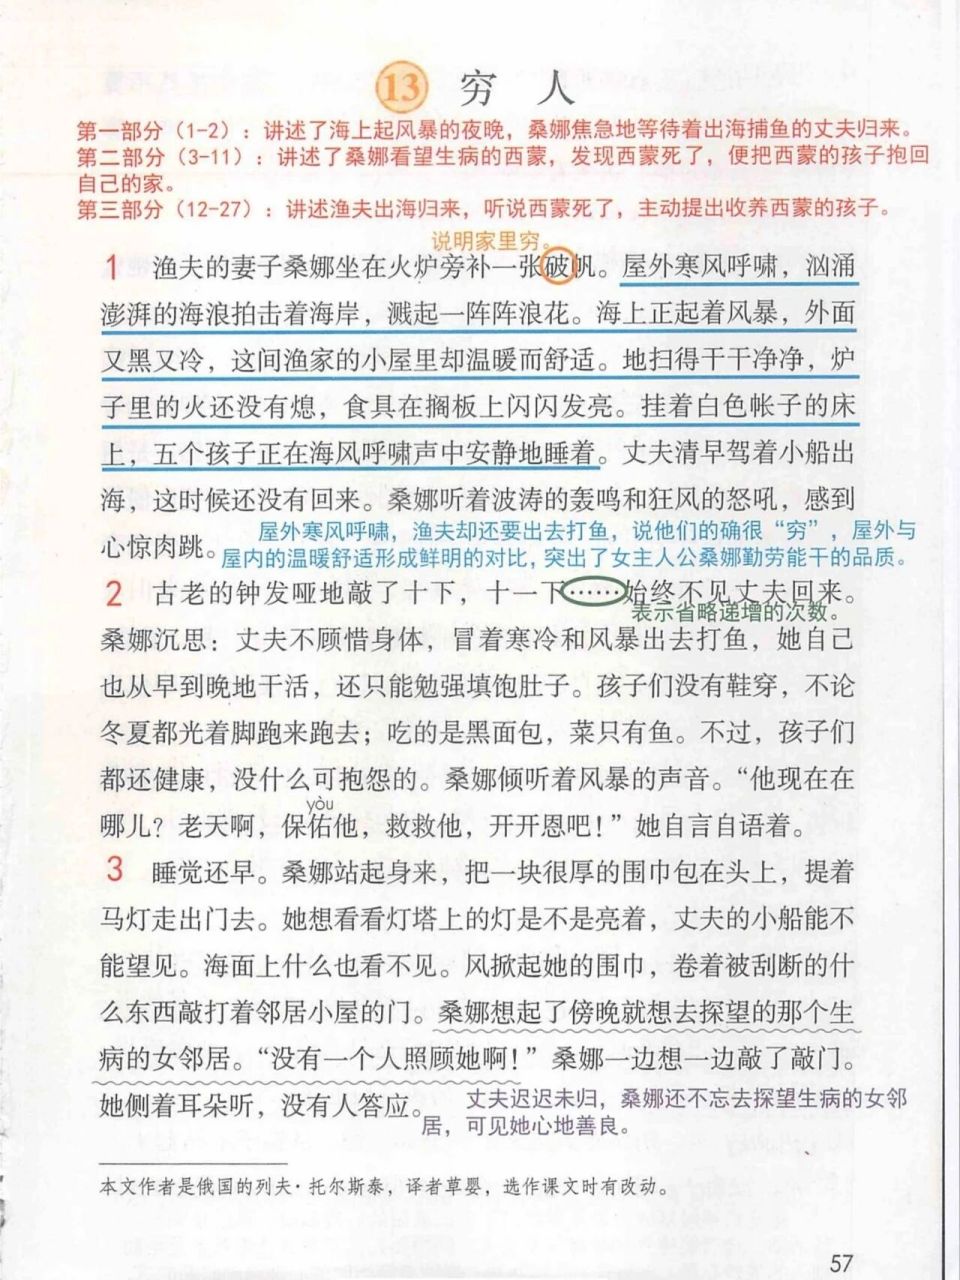 13 穷 人
第一部分（1-2）：讲述了海上起风暴的夜晚，桑娜焦急地等待着出海捕鱼的丈夫归来。
第二部分（3-11）：讲述了桑娜看望生病的西蒙，发现西蒙死了，便把西蒙的孩子抱回
自己的家。
第三部分（12-27）：讲述渔夫出海归来，听说西蒙死了，主动提出收养西蒙的孩子。
说明家里穷。
1 渔夫的妻子桑娜坐在火炉旁补一张破帆。屋外寒风呼啸，汹涌
澎湃的海浪拍击着海岸，溅起一阵阵浪花。海上正起着风暴，外面
又黑又冷，这间渔家的小屋里却温暖而舒适。地扫得干干净净，炉
子里的火还没有熄，食具在搁板上闪闪发亮。挂着白色帐子的床
上，五个孩子正在海风呼啸声中安静地睡着。丈夫清早驾着小船出
海，这时候还没有回来。桑娜听着波涛的轰鸣和狂风的怒吼，感到
心惊肉跳。
屋外寒风呼啸，渔夫却还要出去打鱼，说他们的确很“穷”，屋外与
屋内的温暖舒适形成鲜明的对比，突出了女主人公桑娜勤劳能干的品质。
2 古老的钟发哑地敲了十下，十一下……始终不见丈夫回来。
表示省略递增的次数。
桑娜沉思：丈夫不顾惜身体，冒着寒冷和风暴出去打鱼，她自己
也从早到晚地干活，还只能勉强填饱肚子。孩子们没有鞋穿，不论
冬夏都光着脚跑来跑去；吃的是黑面包，菜只有鱼。不过，孩子们
都还健康，没什么可抱怨的。桑娜倾听着风暴的声音。“他现在在
yòu
哪儿？老天啊，保佑他，救救他，开开恩吧！”她自言自语着。
3 睡觉还早。桑娜站起身来，把一块很厚的围巾包在头上，提着
马灯走出门去。她想看看灯塔上的灯是不是亮着，丈夫的小船能不
能望见。海面上什么也看不见。风掀起她的围巾，卷着被刮断的什
么东西敲打着邻居小屋的门。桑娜想起了傍晚就想去探望的那个生
病的女邻居。“没有一个人照顾她啊！”桑娜一边想一边敲了敲门。
她侧着耳朵听，没有人答应。
丈夫迟迟未归，桑娜还不忘去探望生病的女邻
居，可见她心地善良。
本文作者是俄国的列夫·托尔斯泰，译者草婴，选作课文时有改动。
57